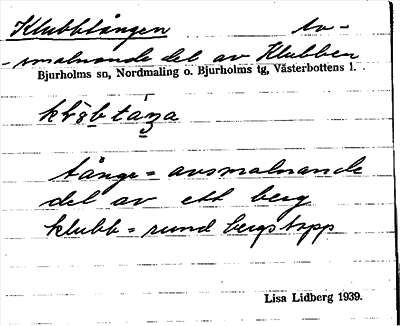 Klubbtången Av-
-smalnande del av Klubben
Bjurholms sn, Nordmaling o. Bjurholms tg, Västerbottens l.
tånge = avsmalnande
del av ett berg
klubb = rund bergstopp
Lisa Lidberg 1939.